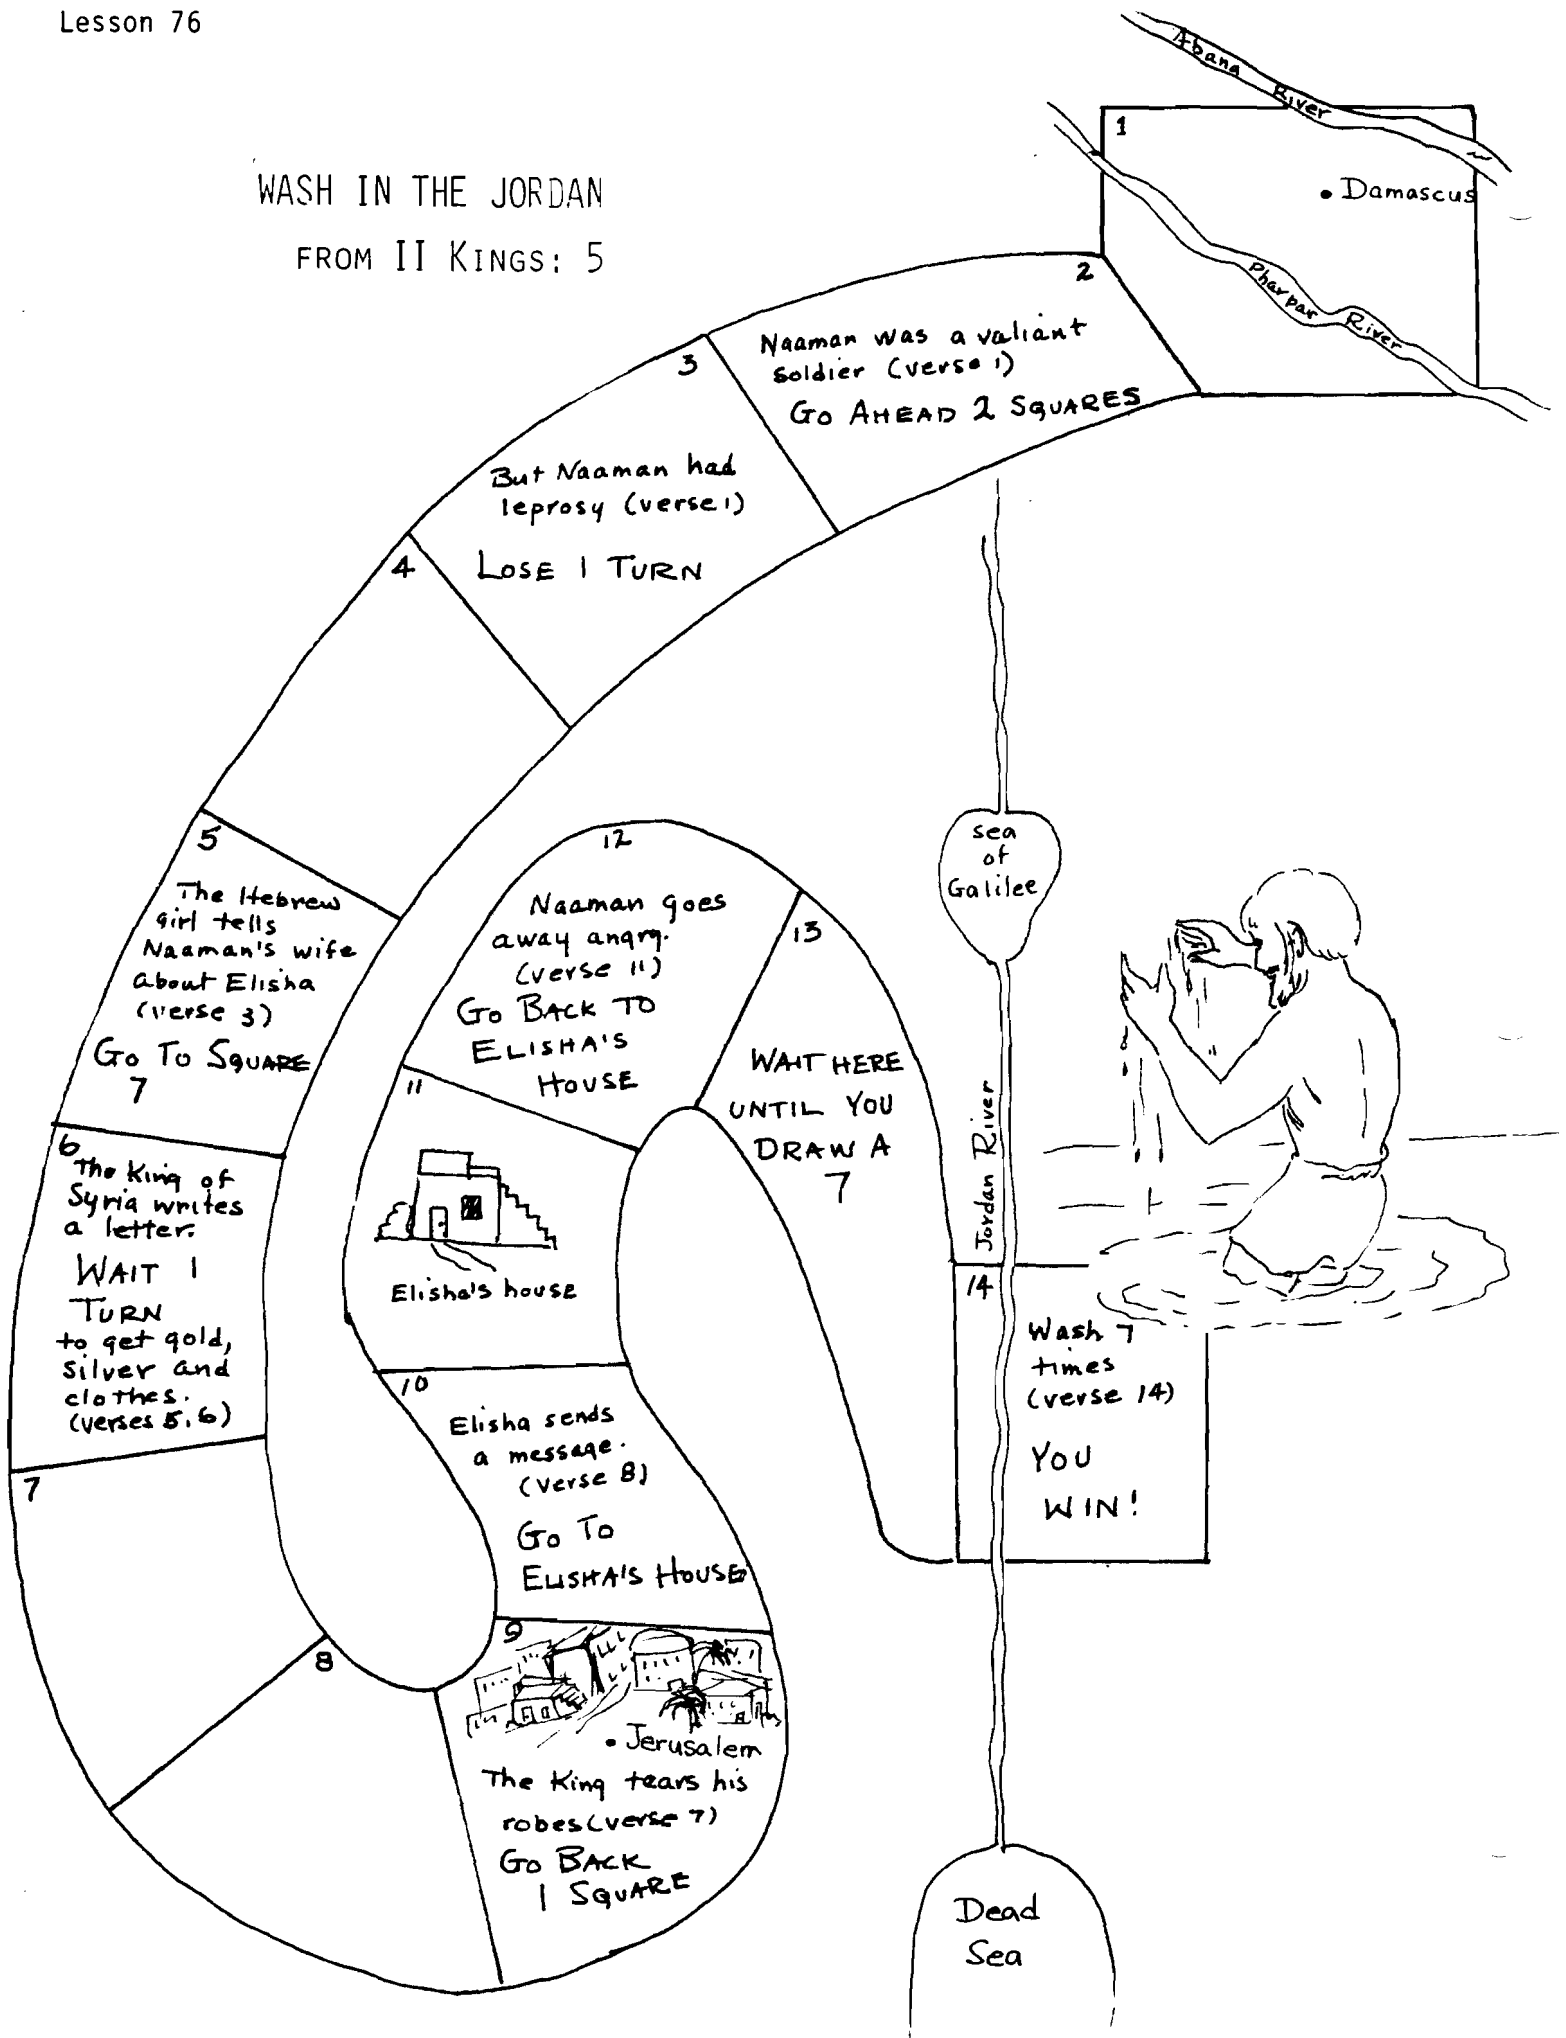 Lesson 76
WASH IN THE JORDAN
FROM II KINGS: 5
Abana River
1
• Damascus
Pharpar River
2
Naaman was a valiant
soldier (verse 1)
GO AHEAD 2 SQUARES
3
But Naaman had
leprosy (verse 1)
LOSE 1 TURN
4
5
The Hebrew
girl tells
Naaman's wife
about Elisha
(verse 3)
GO TO SQUARE
7
6
The King of
Syria writes
a letter.
WAIT 1
TURN
to get gold,
silver and
clothes.
(verses 5,6)
7
8
9
• Jerusalem
The King tears his
robes (verse 7)
GO BACK
1 SQUARE
10
Elisha sends
a message.
(verse 8)
GO TO
ELISHA'S HOUSE
11
Elisha's house
12
Naaman goes
away angry.
(verse 11)
GO BACK TO
ELISHA'S
HOUSE
13
WAIT HERE
UNTIL YOU
DRAW A
7
14
Wash 7
times
(verse 14)
YOU
WIN!
sea
of
Galilee
Jordan River
Dead
Sea